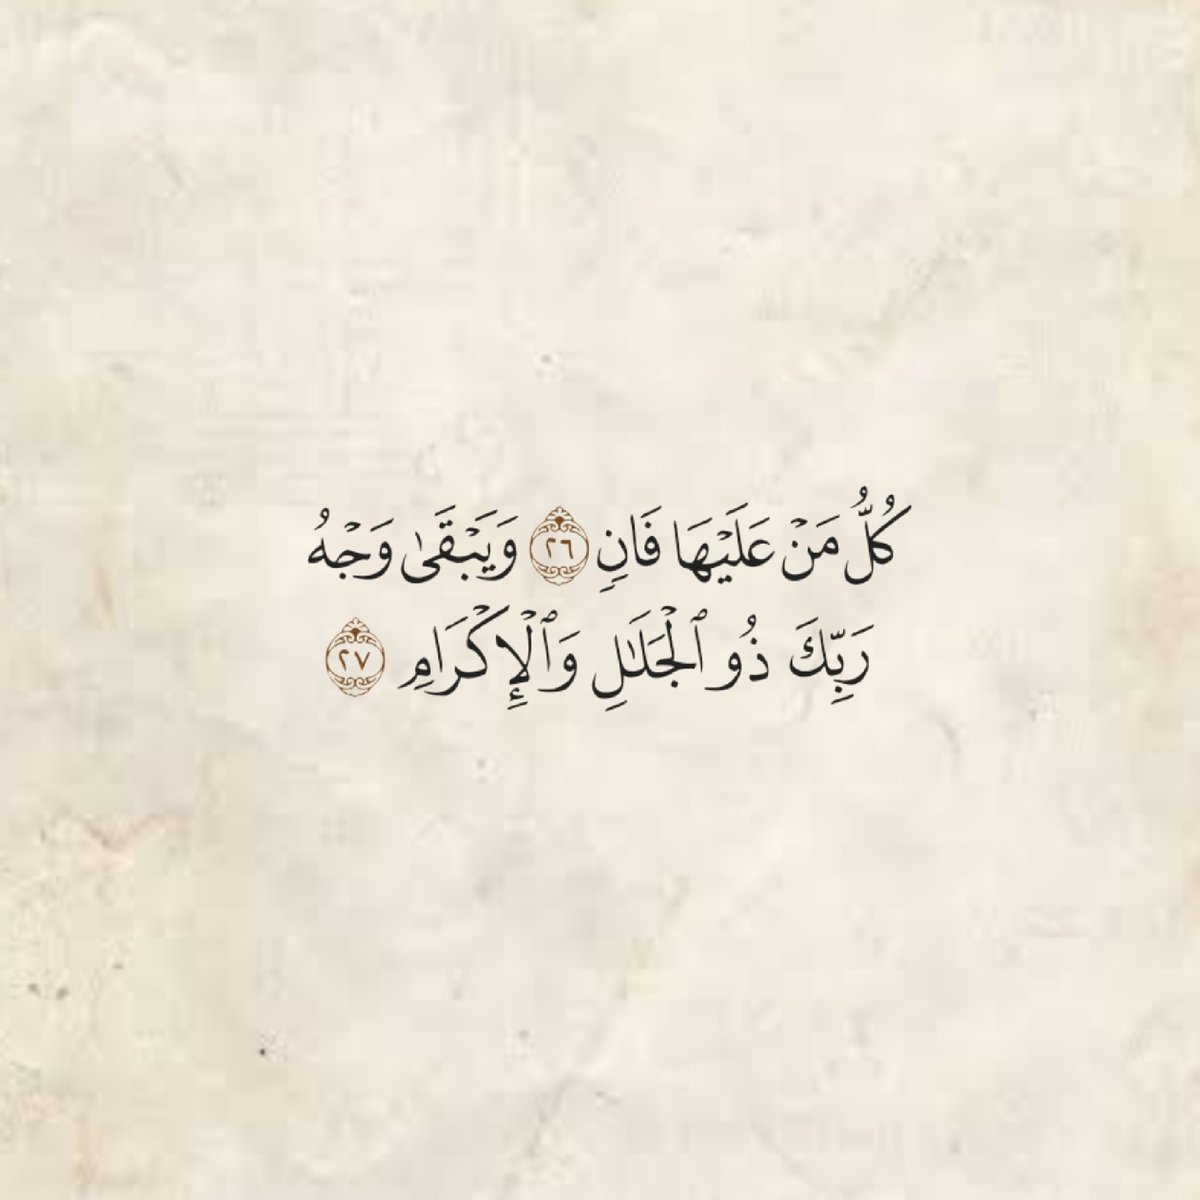 كُلُّ مَنۡ عَلَيۡهَا فَانٖ ٢٦ وَيَبۡقَىٰ وَجۡهُ
رَبِّكَ ذُو ٱلۡجَلَٰلِ وَٱلۡإِكۡرَامِ ٢٧